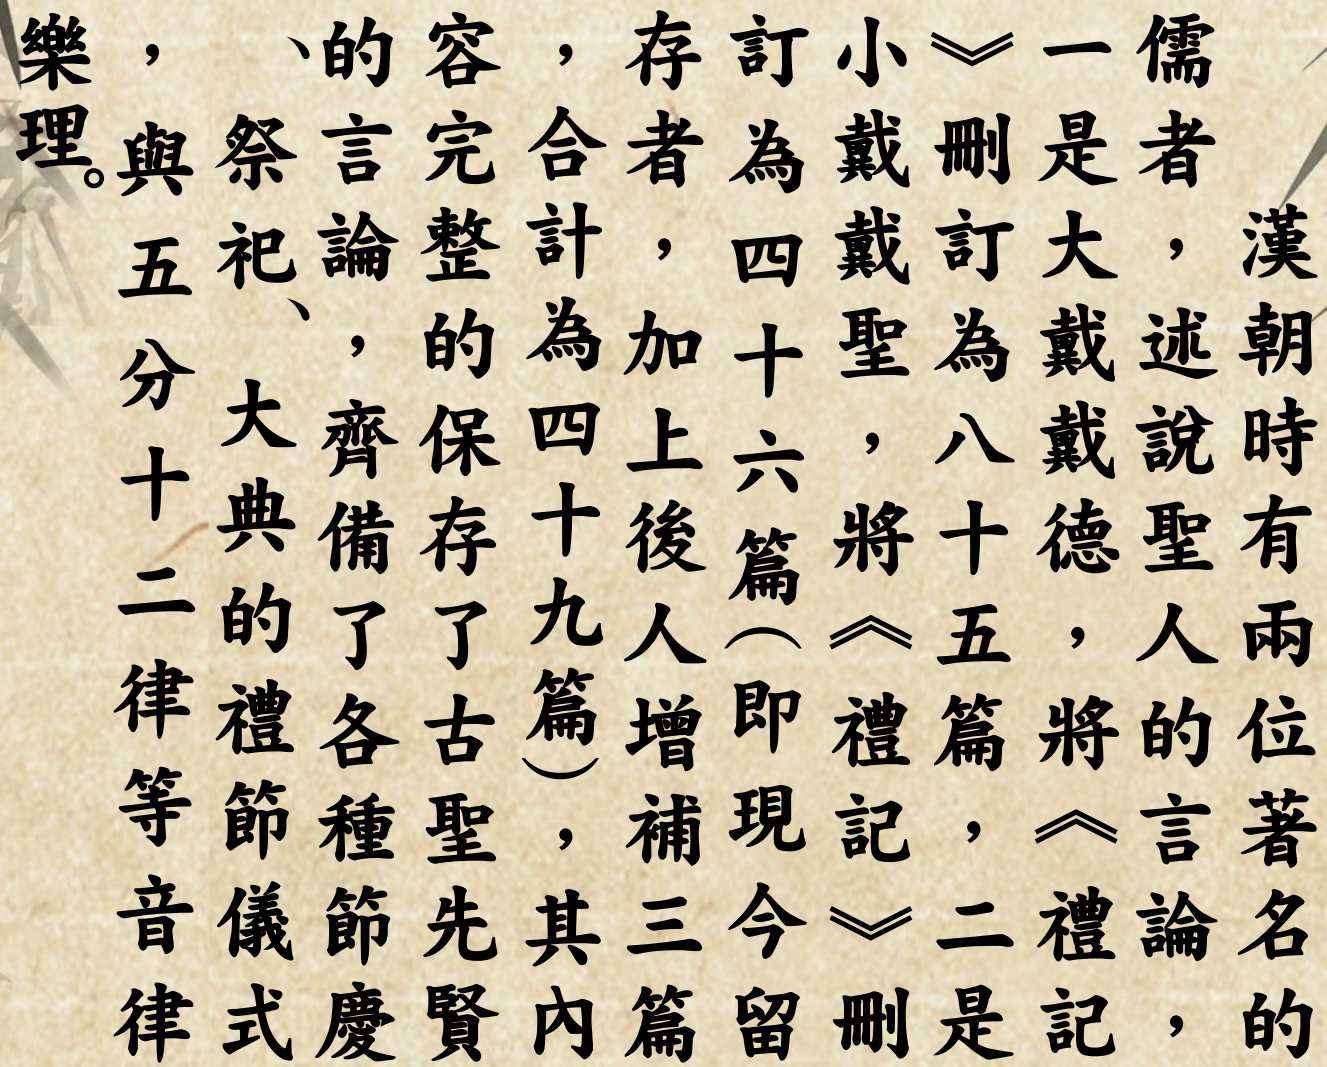 漢朝時有兩位著名的
儒者，述說聖人的言論，
一是大戴戴德，將《禮記
》刪訂為八十五篇，二是
小戴戴聖，將《禮記》刪
訂為四十六篇（即現今留
存者，加上後人增補三篇
，合計為四十九篇），其內
容完整的保存了古聖先賢
的言論，齊備了各種節慶
、祭祀、大典的禮節儀式
，與五分十二律等音律
樂理。